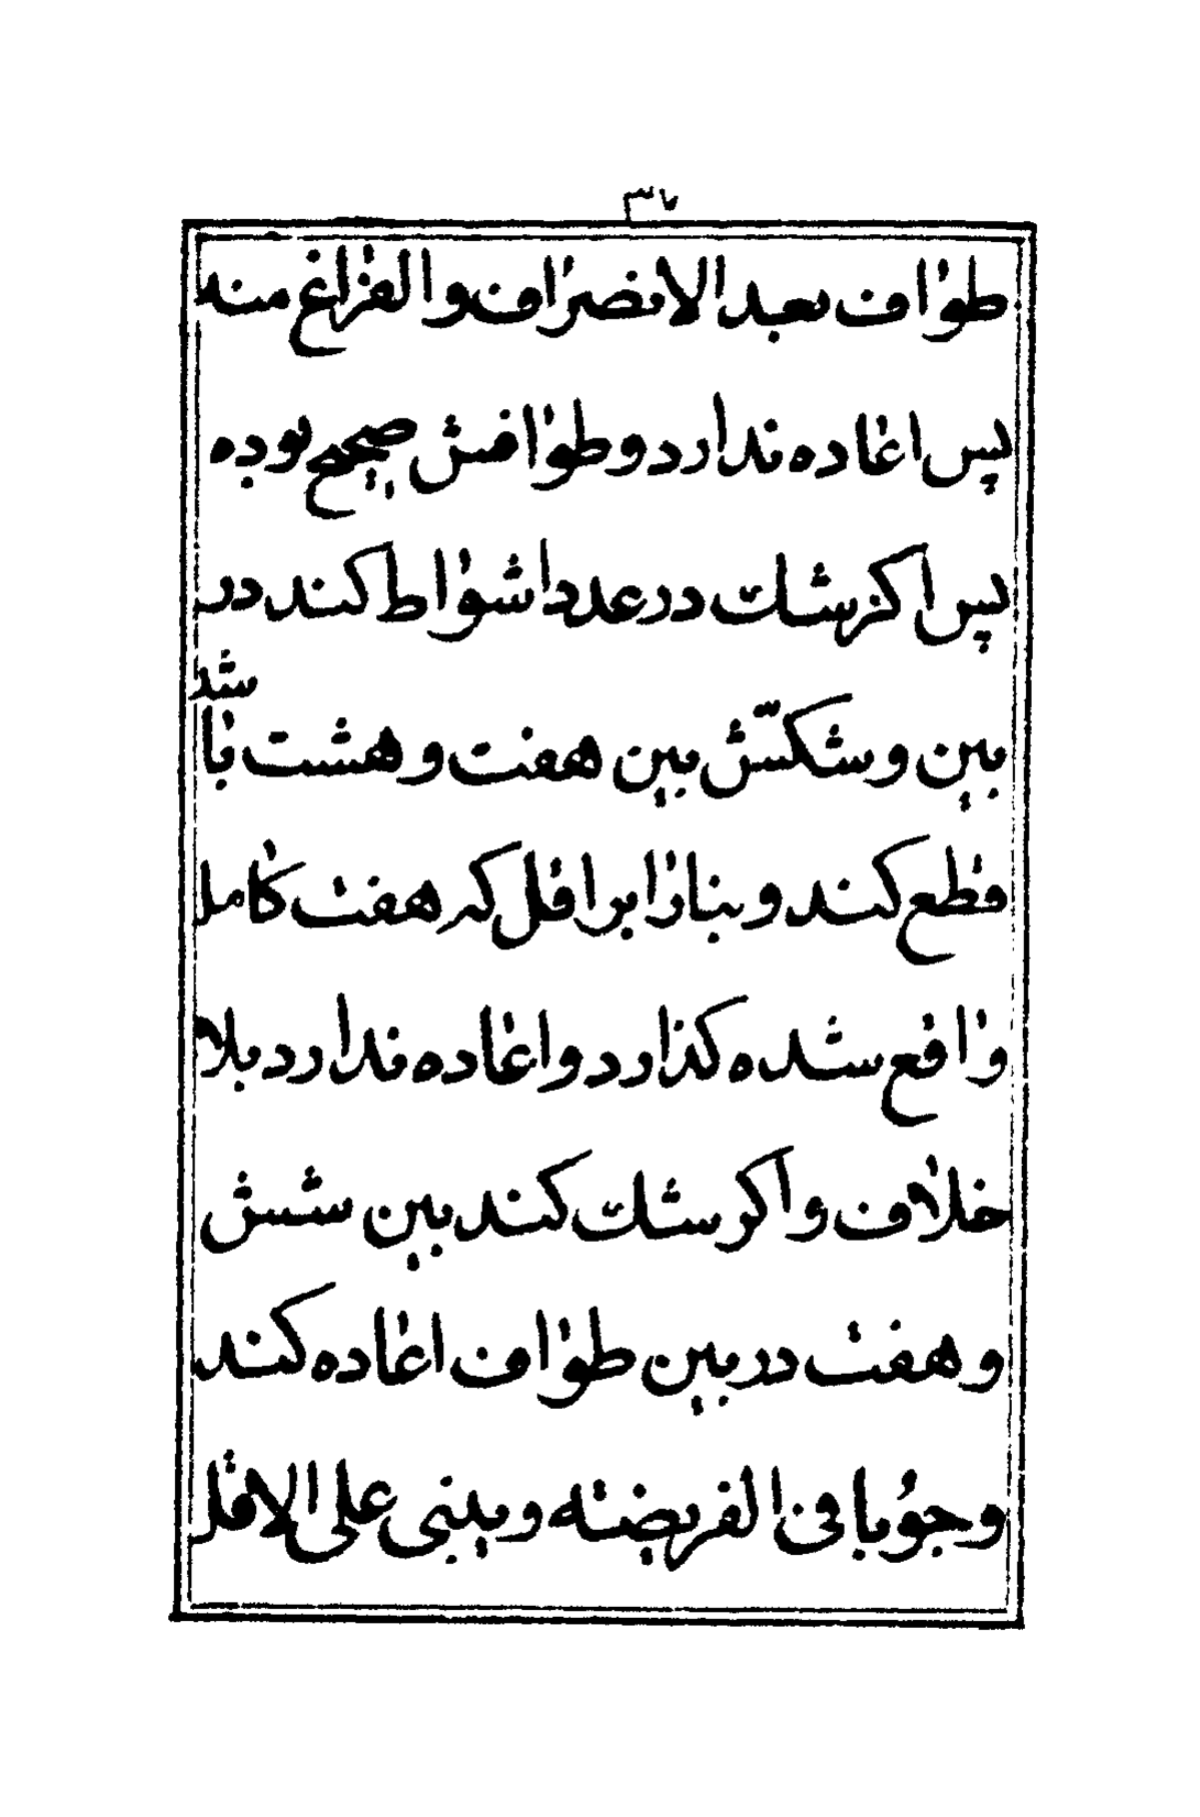 طواف بعد الانصراف والفراغ منه
پس اعاده ندارد و طوافش صحیح بوده
پس اگر شك در عدد اشواط کند در
بین و شکّش بین هفت و هشت باشد
قطع کند و بنا را بر اقل که هفت کامل
واقع شده گذارد و اعاده ندارد بلا
خلاف و اگر شك کند بین شش
و هفت در بین طواف اعاده کند
وجوبا فی الفریضته و یبنی علی الاقل